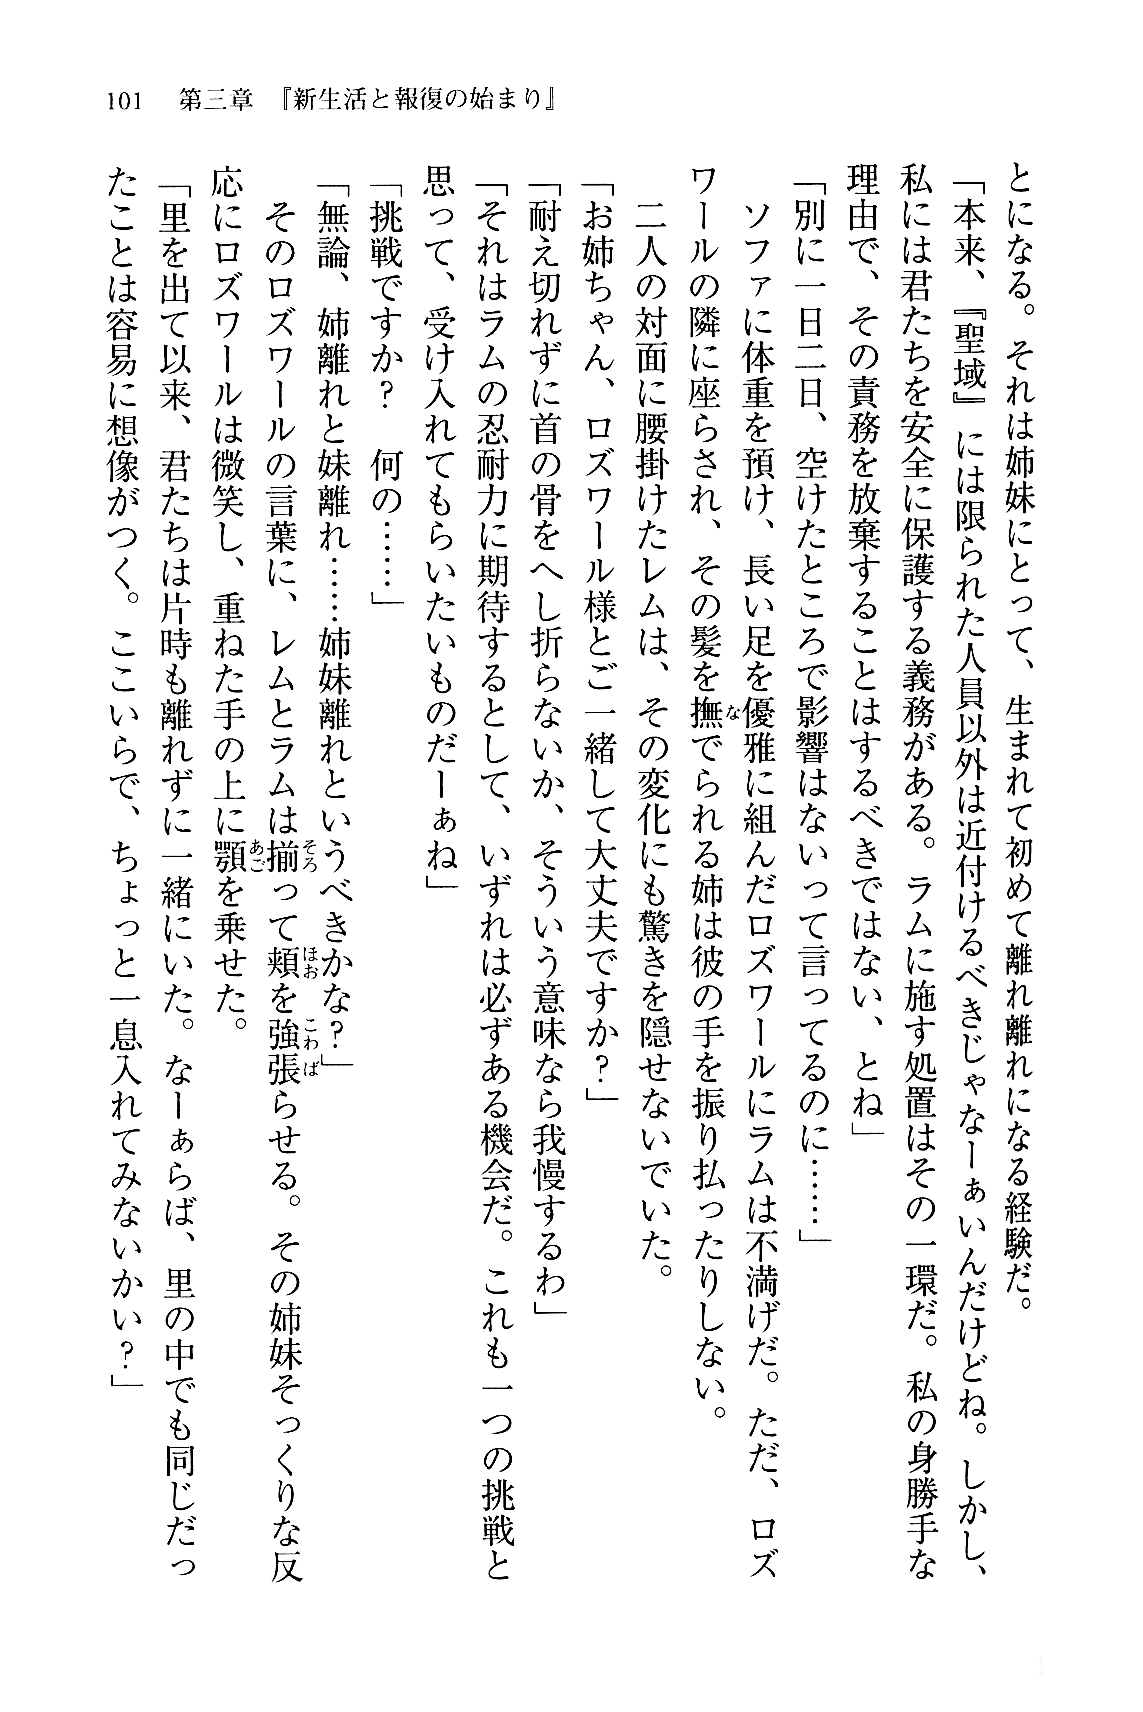 101　第三章　『新生活と報復の始まり』
とになる。それは姉妹にとって、生まれて初めて離れ離れになる経験だ。
「本来、『聖域』には限られた人員以外は近付けるべきじゃなーぁいんだけどね。しかし、
私には君たちを安全に保護する義務がある。ラムに施す処置はその一環だ。私の身勝手な
理由で、その責務を放棄することはするべきではない、とね」
「別に一日二日、空けたところで影響はないって言ってるのに……」
　ソファに体重を預け、長い足を優雅に組んだロズワールにラムは不満げだ。ただ、ロズ
ワールの隣に座らされ、その髪を撫でられる姉は彼の手を振り払ったりしない。
　二人の対面に腰掛けたレムは、その変化にも驚きを隠せないでいた。
「お姉ちゃん、ロズワール様とご一緒して大丈夫ですか？」
「耐え切れずに首の骨をへし折らないか、そういう意味なら我慢するわ」
「それはラムの忍耐力に期待するとして、いずれは必ずある機会だ。これも一つの挑戦と
思って、受け入れてもらいたいものだーぁね」
「挑戦ですか？　何の……」
「無論、姉離れと妹離れ……姉妹離れというべきかな？」
　そのロズワールの言葉に、レムとラムは揃って頬を強張らせる。その姉妹そっくりな反
応にロズワールは微笑し、重ねた手の上に顎を乗せた。
「里を出て以来、君たちは片時も離れずに一緒にいた。なーぁらば、里の中でも同じだっ
たことは容易に想像がつく。ここいらで、ちょっと一息入れてみないかい？」